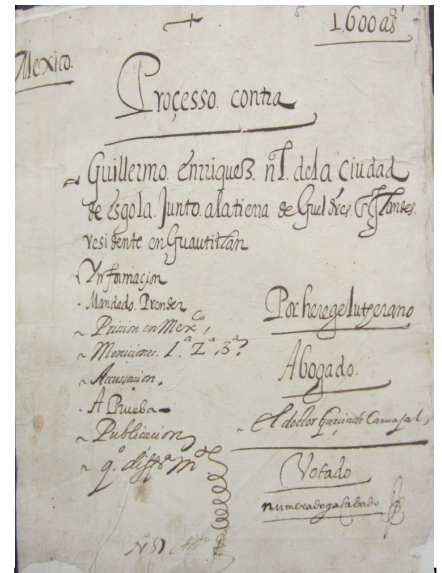 1.600 as
Mexico.
Proçesso. contra
Guillermo. enrriquez. nl. de la ciudad
de esgola. Junto. a la tierra de Gueldres.
residente en Guautitlan
Ynformaçion
Mandado. Prender
Prision en Mexco,
Moniciones. 1ª. 2ª. 3ª.
Accussaçion.
A Prueba
Publicaçion
Por herege luterano
Abogado.
El doctor Garçia de Carvajal,
Votado
numerado y acabado